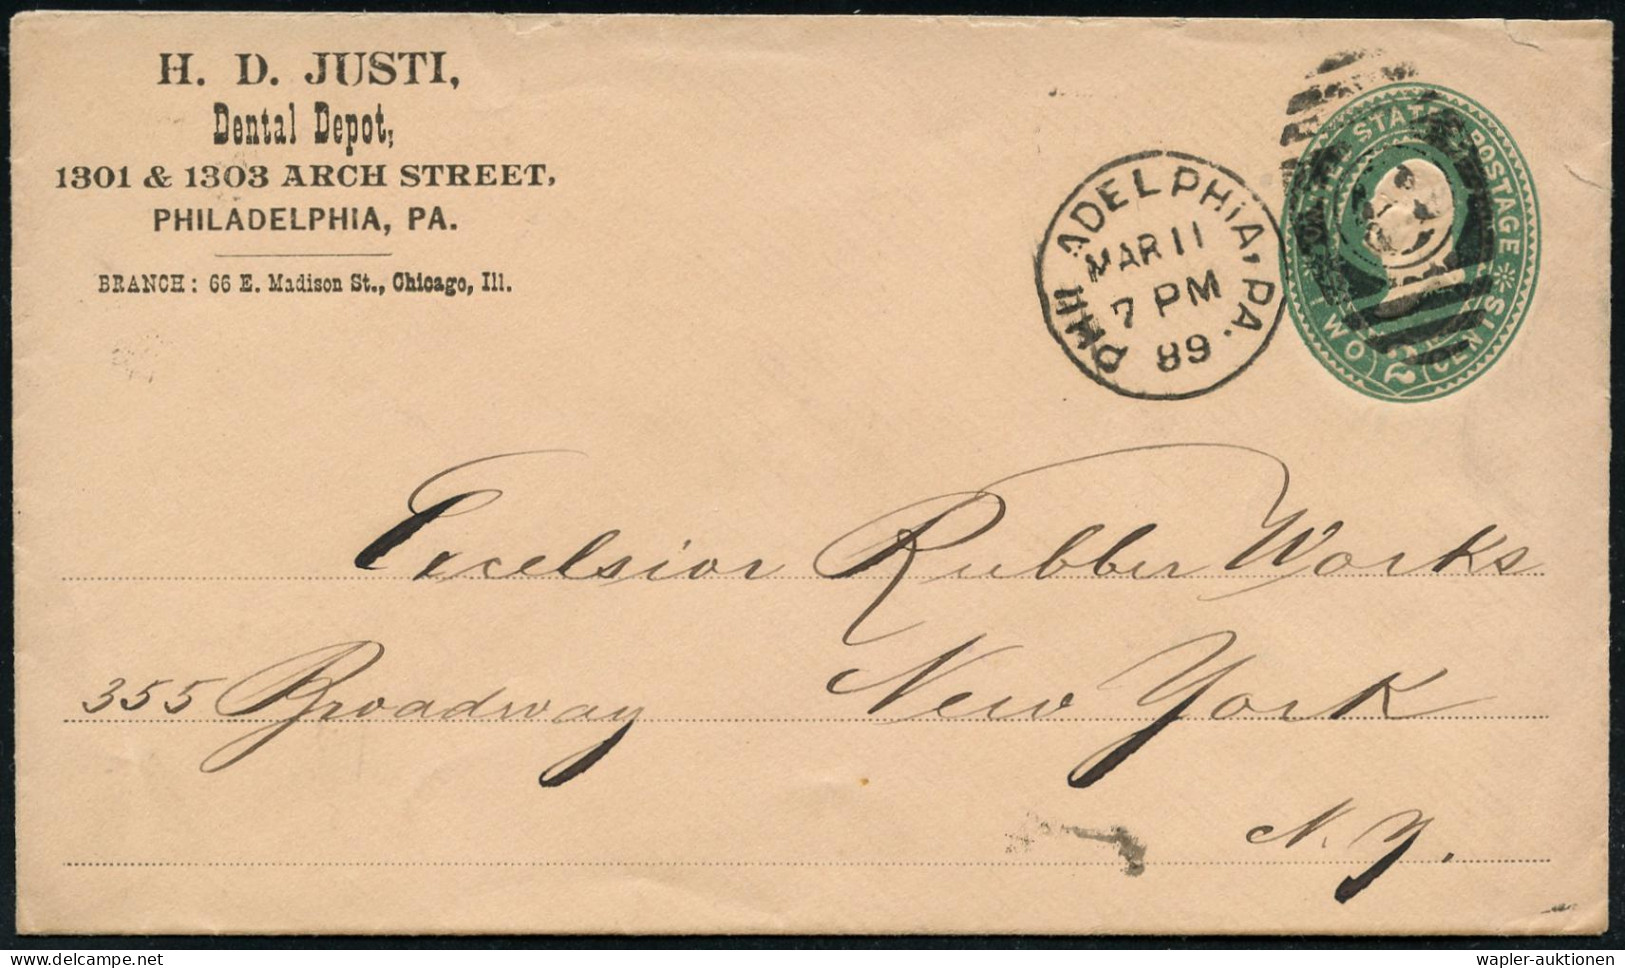 H. D. JUSTI,
Dental Depot,
1301 & 1303 ARCH STREET,
PHILADELPHIA, PA.
BRANCH: 66 E. Madison St., Chicago, Ill.
PHILADELPHIA, PA.
MAR 11
7 PM
89
UNITED STATES POSTAGE
TWO 2 CENTS
Excelsior Rubber Works
355 Broadway New York
N. Y.
wapler-auktionen
delcampe.net